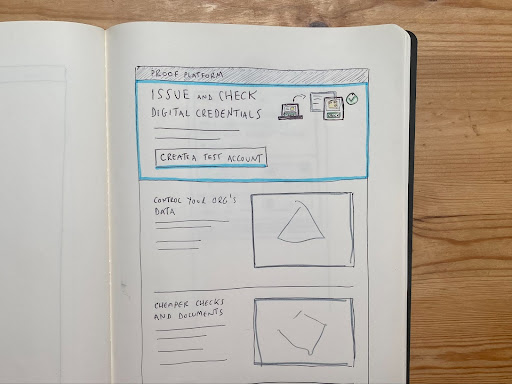 PROOF PLATFORM
ISSUE AND CHECK
DIGITAL CREDENTIALS
CREATE A TEST ACCOUNT
CONTROL YOUR ORG'S
DATA
CHEAPER CHECKS
AND DOCUMENTS